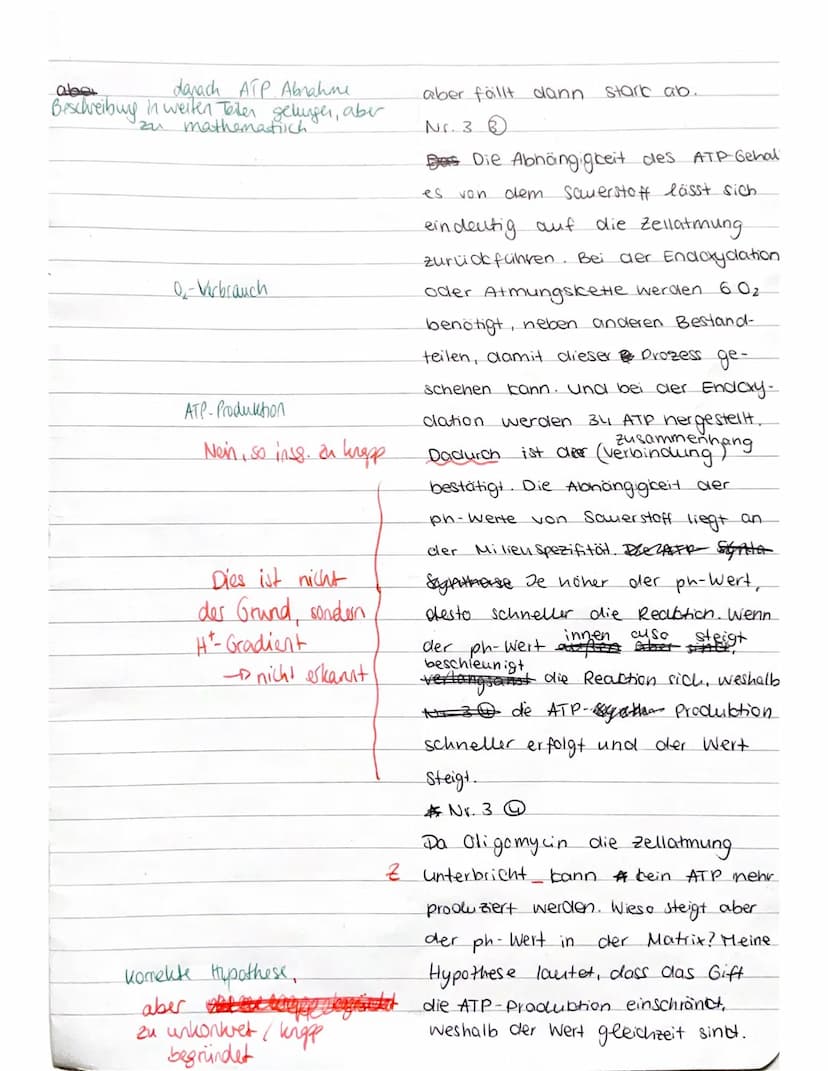 danach ATP Abnahme
Beschreibung in weiten Teilen gelungen, aber
zu mathematisch
aber fällt dann stark ab.
Nr. 3 ③
Die Abhängigkeit des ATP-Gehal
es von dem Sauerstoff lässt sich
eindeutig auf die Zellatmung
zurückführen. Bei der Endoxydation
O₂-Verbrauch
oder Atmungskette werden 6 O₂
benötigt, neben anderen Bestand-
teilen, damit dieser Prozess ge-
schehen kann. Und bei der Endoxy-
ATP-Produktion
dation werden 34 ATP hergestellt.
Nein, so insg. zu knapp
Dadurch ist der (Verbindung) zusammenhang
bestätigt. Die Abhängigkeit der
ph-Werte von Sauerstoff liegt an
der Milieuspezifität.
Je höher der ph-Wert,
desto schneller die Reaktion. Wenn
der ph-Wert innen also steigt
beschleunigt
die Reaction sich, weshalb
die ATP- Produktion
schneller erfolgt und der Wert
steigt.
Dies ist nicht
der Grund, sondern
H⁺-Gradient
→ nicht erkannt
Nr. 3 ④
Da Oligomycin die Zellatmung
Z
unterbricht_ kann kein ATP mehr
produziert werden. Wieso steigt aber
der ph-Wert in der Matrix? Meine
Hypothese lautet, dass das Gift
die ATP-Produktion einschränkt,
weshalb der Wert gleichzeit sinkt.
korrekte Hypothese,
aber
zu unkonkret / knapp
begründet